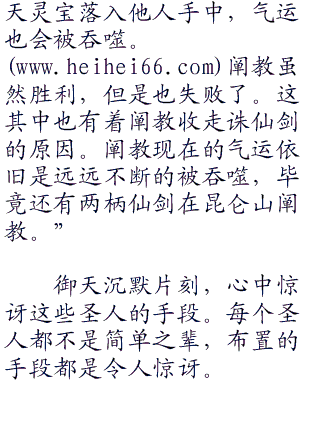 天灵宝落入他人手中，气运
也会被吞噬。
(www.heihei66.com)阐教虽
然胜利，但是也失败了。这
其中也有着阐教收走诛仙剑
的原因。阐教现在的气运依
旧是远远不断的被吞噬，毕
竟还有两柄仙剑在昆仑山阐
教。”
御天沉默片刻，心中惊
讶这些圣人的手段。每个圣
人都不是简单之辈，布置的
手段都是令人惊讶。